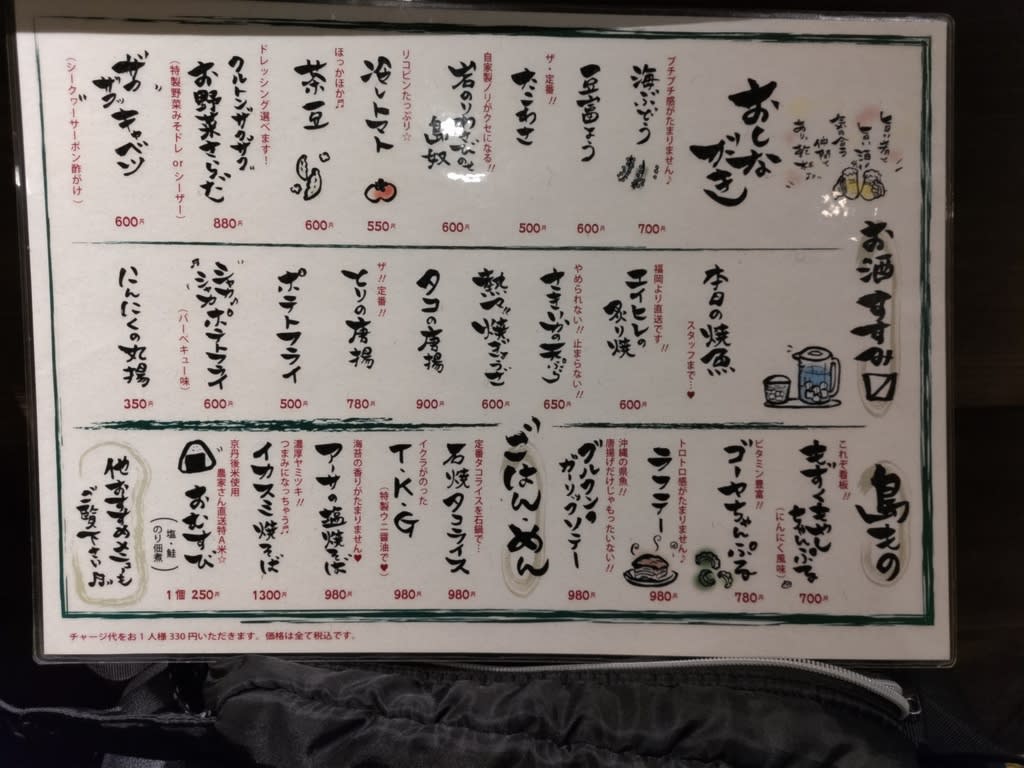 旨い肴と
旨い酒
気の合う
仲間で
おしながき
お酒すすみ〼
プチプチ感がたまりません♪
海ぶどう
700円
豆富よう
600円
ザ・定番!!
たこわさ
500円
自家製ノリがクセになる!!
岩のりわさびの
島奴
600円
リコピンたっぷり☆
冷しトマト
550円
ほっかほか♬
茶豆
600円
ドレッシング選べます!
クルトンザクザク
お野菜さらだ
(特製野菜みそドレ or シーザー)
880円
ザクザクッキャベツ
(シークヮーサーポン酢がけ)
600円
本日の焼魚
スタッフまで…♥
福岡より直送です!!
エイヒレの
炙り焼
600円
やめられない!! 止まらない!!
さきいかの天ぷら
650円
熱々焼きょうざ
600円
タコの唐揚
900円
ザ!!定番!!
とりの唐揚
780円
ポテトフライ
500円
シャカシャカポテトフライ
(バーベキュー味)
600円
にんにくの丸揚
350円
島もの
これぞ看板!!
もずくそうめん
ちゃんぷるー
(にんにく風味)
700円
ビタミン豊富!!
ゴーヤちゃんぷるー
780円
トロトロ感がたまりません♪
ラフテー
980円
沖縄の県魚!!
唐揚げだけじゃもったいない!!
グルクンの
ガーリックソテー
980円
ごはん・めん
定番タコライスを石鍋で…
石焼タコライス
980円
イクラがのった
T・K・G
(特製ウニ醤油で♥)
980円
海苔の香りがたまりません♥
アーサの塩焼そば
980円
濃厚ヤミツキ!!
つまみになっちゃう♬
イカスミ焼そば
1300円
京丹後米使用
農家さん直送特A米☆
おむすび
(塩・鮭
のり佃煮)
1個 250円
他おすすめさっも
ご覧下さい♬
チャージ代をお1人様330円いただきます。価格は全て税込です。